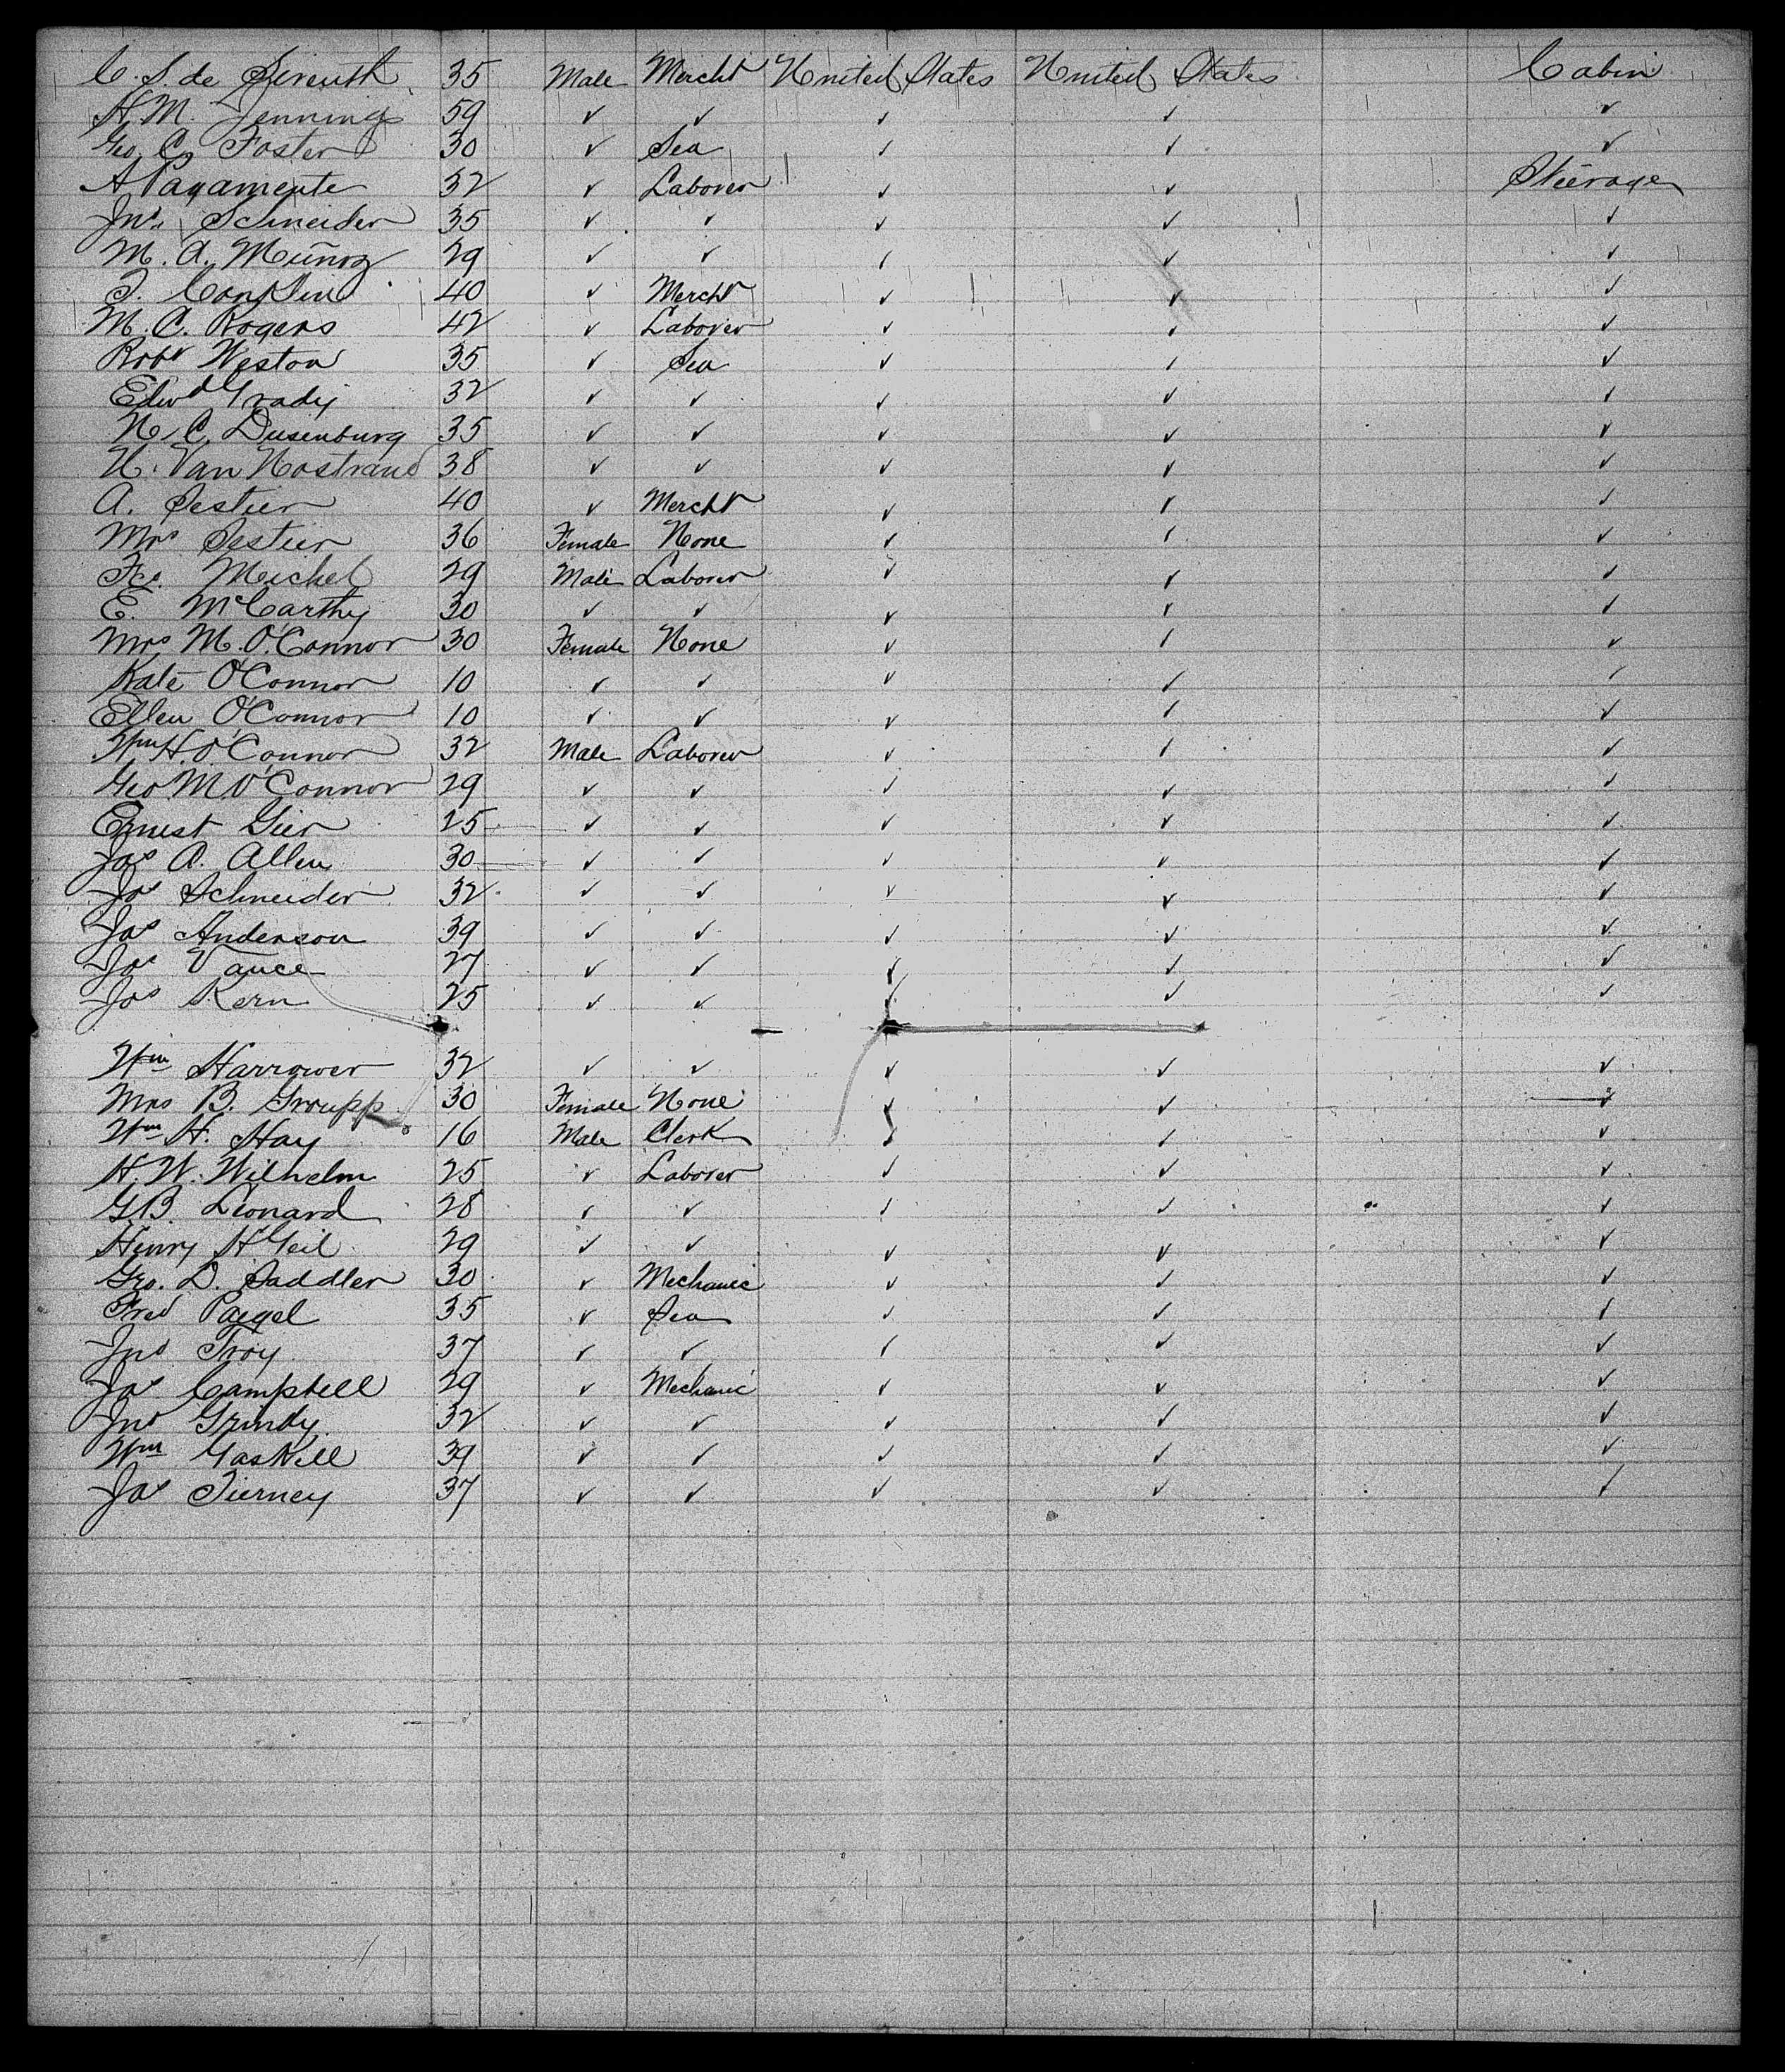 C. S. de 35 Male Mercht United States United States Cabin
H. M. Jennings 59 ✓ ✓ ✓ ✓ ✓
Geo. C. Foster 30 ✓ Sea ✓ ✓ ✓
A Pagamente 32 ✓ Laborer ✓ ✓ Steerage
Jno. Schneider 35 ✓ ✓ ✓ ✓ ✓
M. A. Muñoz 29 ✓ ✓ ✓ ✓ ✓
T. Conklin 40 ✓ Mercht ✓ ✓ ✓
M. C. Rogers 42 ✓ Laborer ✓ ✓ ✓
Robt Weston 35 ✓ Sea ✓ ✓ ✓
Edwd Grady 32 ✓ ✓ ✓ ✓ ✓
N. C. Dusenburg 35 ✓ ✓ ✓ ✓ ✓
N. Van Nostrand 38 ✓ ✓ ✓ ✓ ✓
A. Sestier 40 ✓ Mercht ✓ ✓ ✓
Mrs Sestier 36 Female None ✓ ✓ ✓
Meichel 29 Male Laborer ✓ ✓ ✓
E. McCarthy 30 ✓ ✓ ✓ ✓ ✓
Mrs M. O'Connor 30 Female None ✓ ✓ ✓
Kate O'Connor 10 ✓ ✓ ✓ ✓ ✓
Ellen O'Connor 10 ✓ ✓ ✓ ✓ ✓
Wm H. O'Connor 32 Male Laborer ✓ ✓ ✓
Geo M O'Connor 29 ✓ ✓ ✓ ✓ ✓
Ernest Gier 25 ✓ ✓ ✓ ✓ ✓
Jas A. Allen 30 ✓ ✓ ✓ ✓ ✓
Jos Schneider 32 ✓ ✓ ✓ ✓ ✓
Jas Anderson 39 ✓ ✓ ✓ ✓ ✓
Jas Vance 27 ✓ ✓ ✓ ✓ ✓
Jos Kern 25 ✓ ✓ ✓ ✓ ✓
Wm Harrower 32 ✓ ✓ ✓ ✓ ✓
Mrs B. Groupp 30 Female None ✓ ✓ ✓
Wm H. Hay 16 Male Clerk ✓ ✓ ✓
H. W. Wilhelm 25 ✓ Laborer ✓ ✓ ✓
G. B. Leonard 28 ✓ ✓ ✓ ✓ ✓
Henry H Geil 29 ✓ ✓ ✓ ✓ ✓
Geo. D. Saddler 30 ✓ Mechanic ✓ ✓ ✓
Fred Paegel 35 ✓ Sea ✓ ✓ ✓
Jno Troy 37 ✓ ✓ ✓ ✓ ✓
Jas Campbell 29 ✓ Mechanic ✓ ✓ ✓
Jno Grindy 32 ✓ ✓ ✓ ✓ ✓
Wm Gaskill 39 ✓ ✓ ✓ ✓ ✓
Jas Tierney 37 ✓ ✓ ✓ ✓ ✓